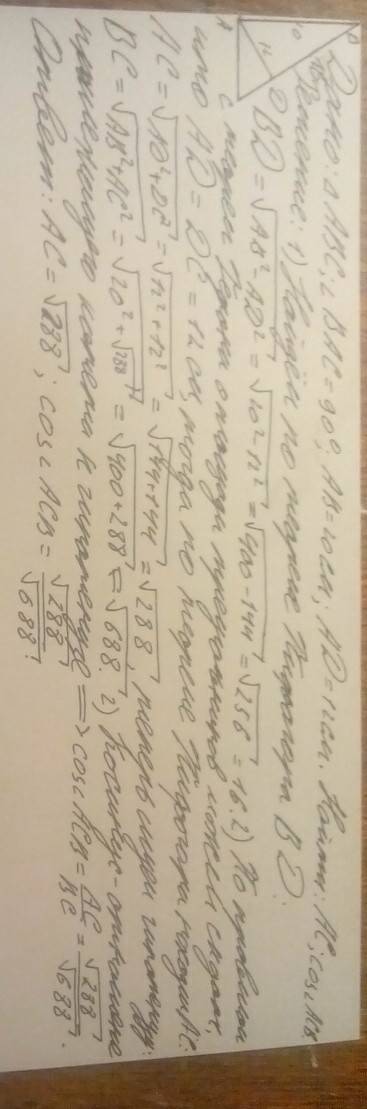 Дано: ΔABC; ∠BAC=90°; AB=20см; AD=12см. Найти: AC; cos∠ACB
Решение: 1) Найдём по теореме Пифагора BD:
BD = √AB²-AD² = √20²-12² = √400-144 = √256 = 16. 2) По правилам
что AD = DC = 12 см, тогда по теореме Пифагора находим AC:
AC = √AD²+DC² = √12²+12² = √144+144 = √288, теперь ищем гипотенузу:
BC = √AB²+AC² = √20²+√288² = √400+288 = √688. 2) Косинус - отношение
прилежащего катета к гипотенузе => cos∠ACB = AC/BC = √288/√688.
Ответ: AC = √288; cos∠ACB = √288/√688.